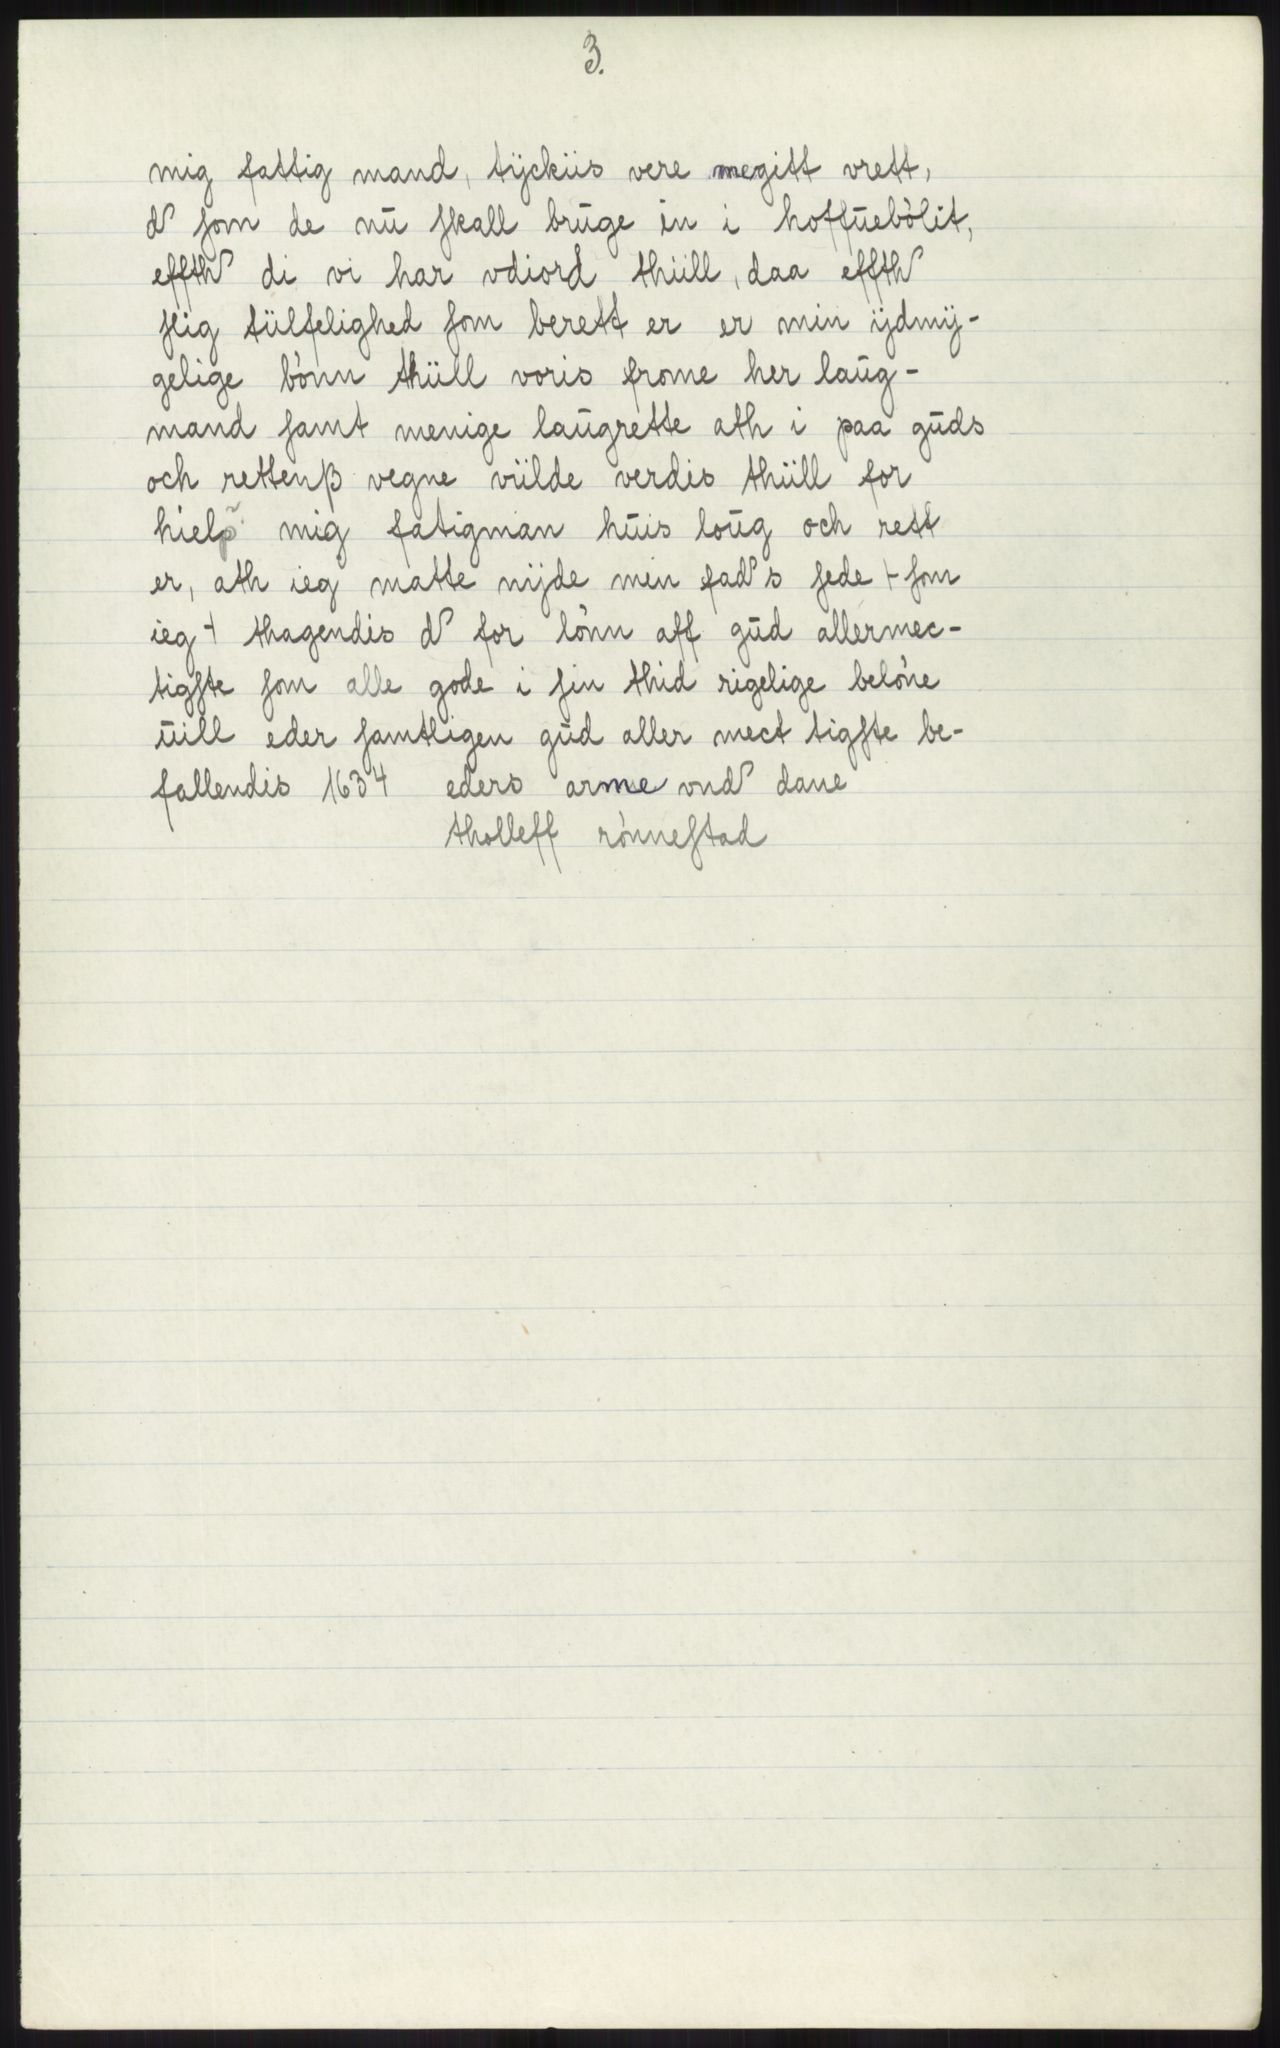 3.
mig fattig mand, tÿckiis vere megitt vrett,
d som de nū skall brūge in i hoffūebólit,
effth di vi har vdiord thüll, daa effth
slig tülfelighed som berett er er min ÿdmÿ-
gelige bónn thüll voris frome her laūg-
mand samt menige laūgrette ath i paa gūds
och rettenβ vegne vülde verdis thüll for
hielp mig fatigman hūis loūg och rett
er, ath ieg matte nÿde min fads sede + som
ieg + thagendis d for lónn aff gūd allermec-
tigste som alle gode i sin thid rigelige belóne
ūill eder samtligen gūd aller mect tigste be-
fallendis 1634 eders arme vnd dane
tholleff rónnestad